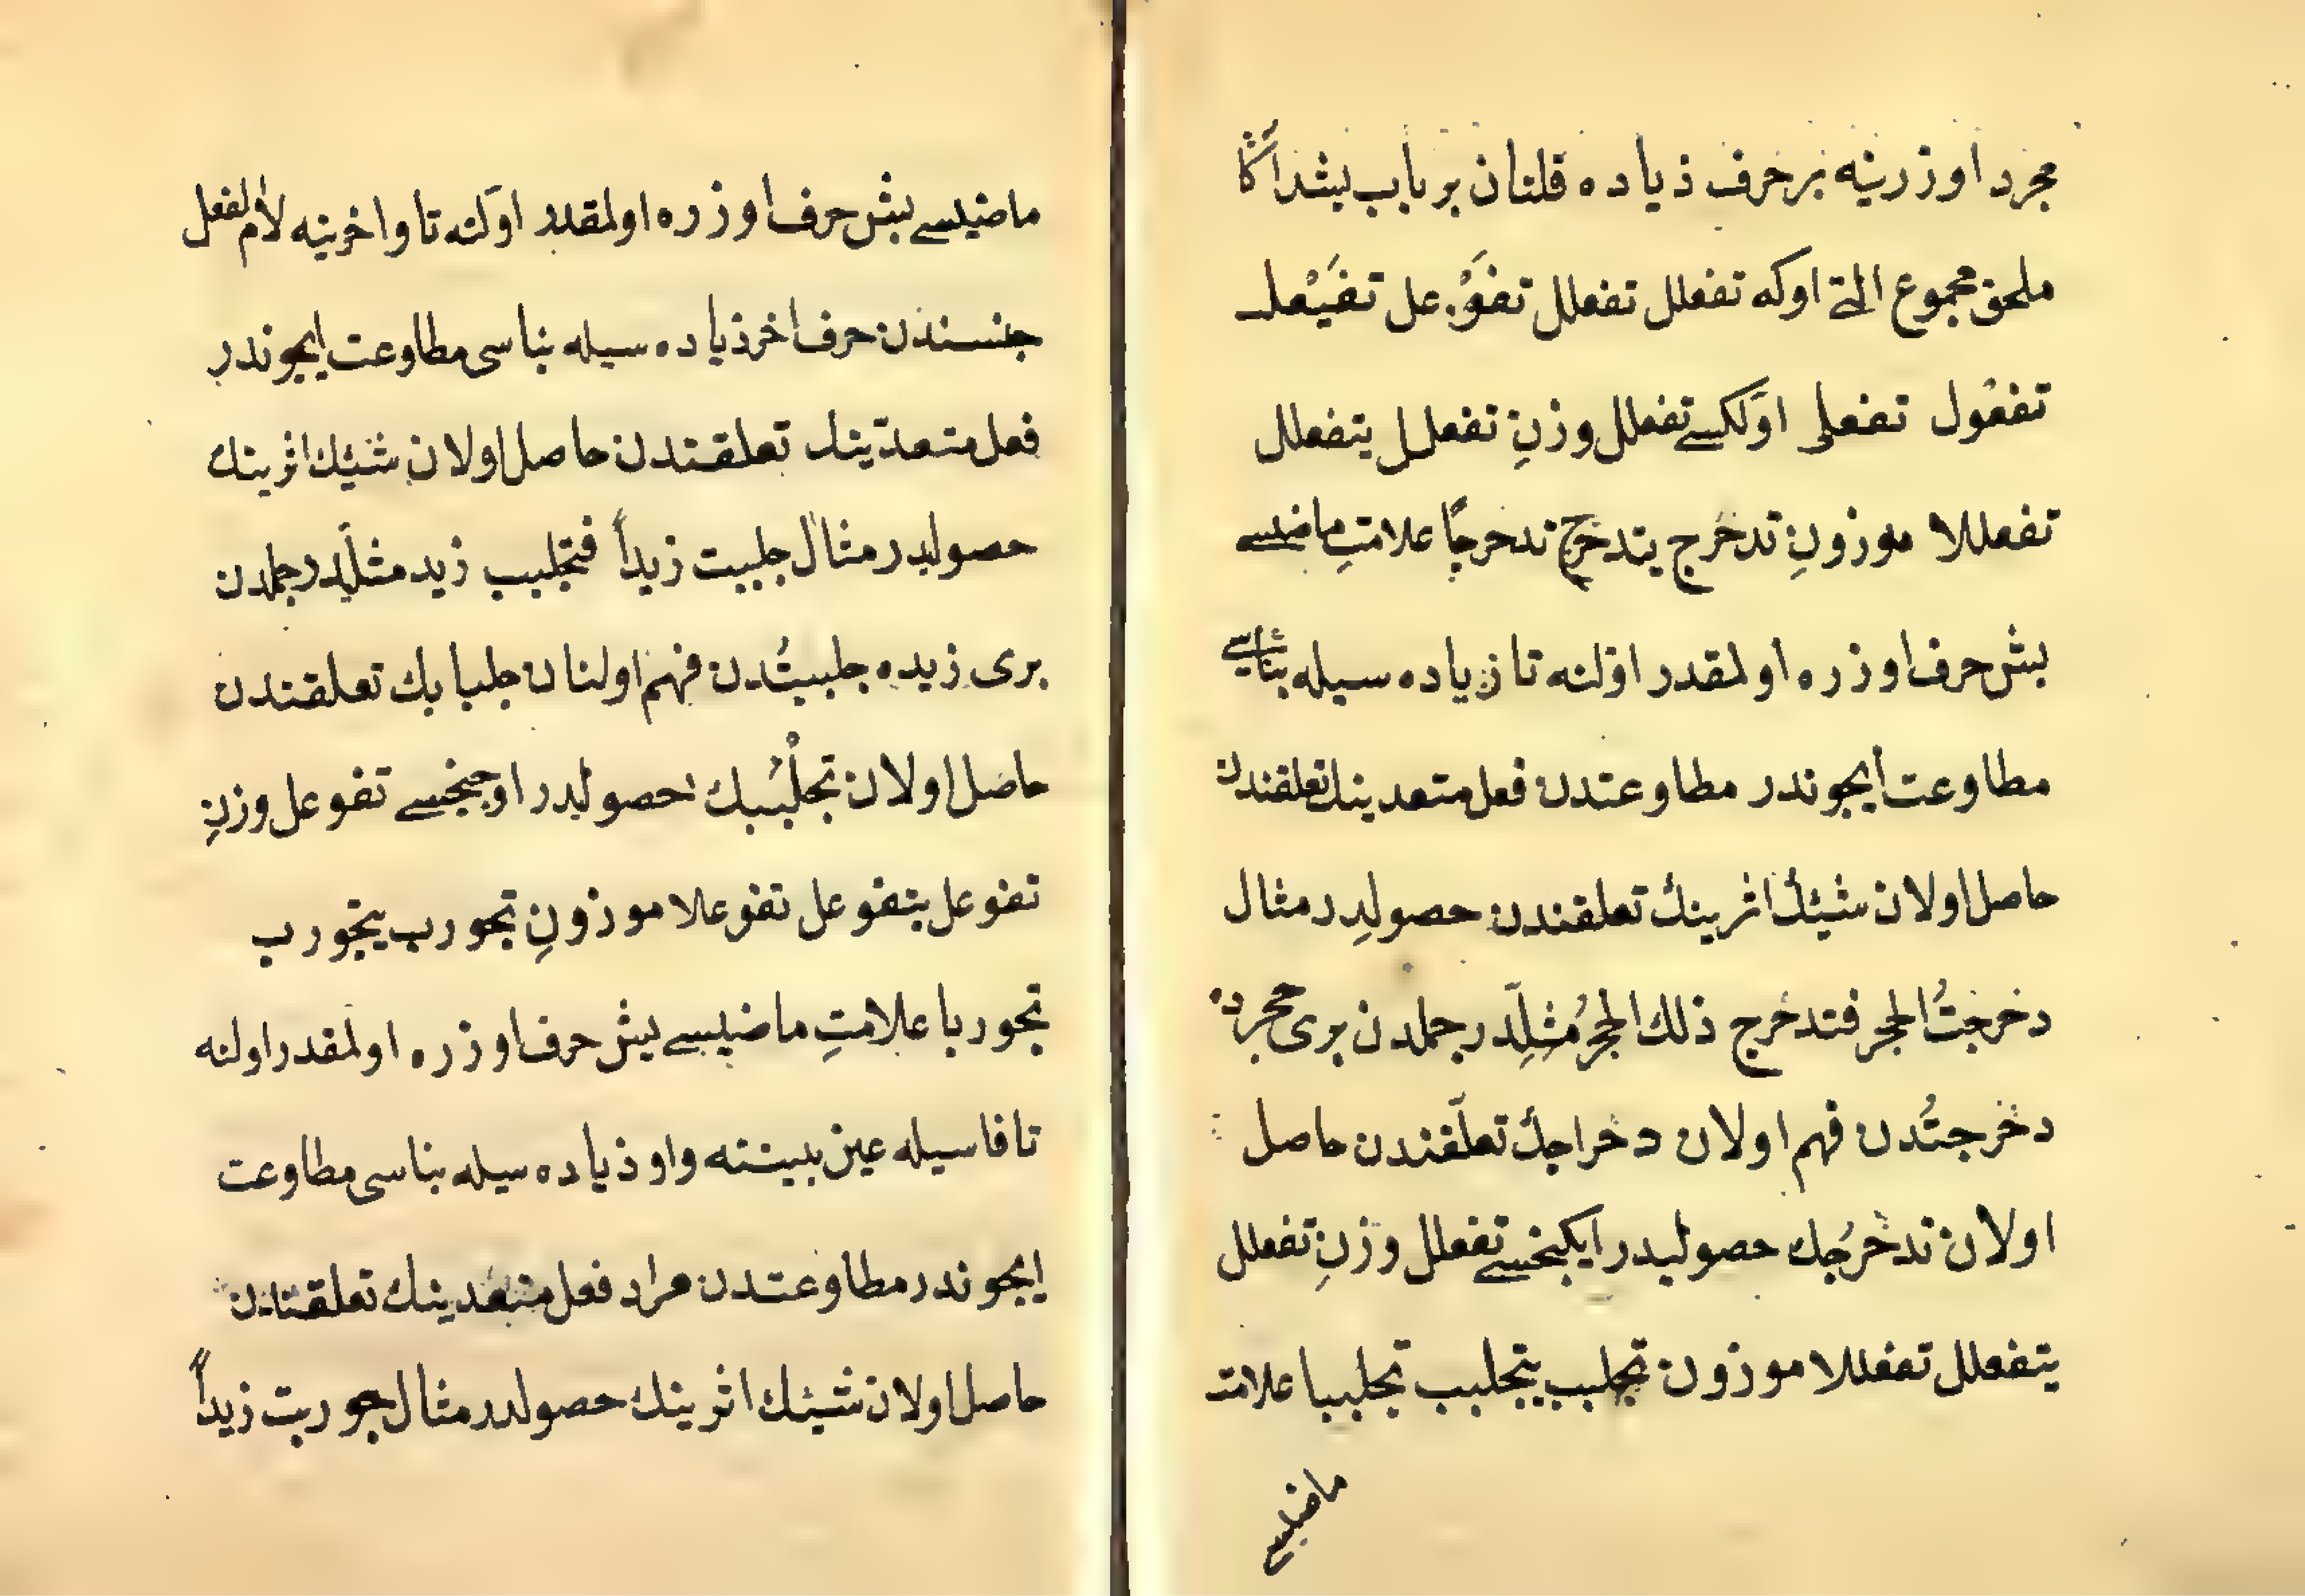 مجرد اوزرينه بر حرف زياده قلنان بر باب بشد اڭا
ملحق مجموع التى اوكه تفعلل تفعلل تفَوْعل تفَيْعل
تفعْول تفعلى اوّلكىسى تفعلل وزنِ تفعلل يتفعلل
تفعللا موزونِ تدخرج يتدخرج تدخرجًا علامتِ ماضيسى
بش حرف اوزره اولمقدر اوّلنه تا زياده سيله بناسى
مطاوعت ايچوندر مطاوعتدن فعل متعدينك تعلقندن
حاصل اولان شيئك اثرينك تعلقندن حصولِدر مثال
دخرجتُ الحجر فتدخرج ذلك الحجرُ مثلِدر جملدن برى حجرده
دخرجتُدن فهم اولان دخراجك تعلّقندن حاصل
اولان تدخرُجك حصوليدر ايكنجسى تفعلل وزنِ تفعلل
يتفعلل تفعللا موزون تجلبب يتجلبب تجلببا علامت
ماضيسى
ماضيسى بش حرف اوزره اولمقدر اوّلنه تا واخرينه لام الفعل
جنسندن حرف اخر زياده سيله بناسى مطاوعت ايچوندر
فعل متعدّينك تعلقندن حاصل اولان شيئك اثرينك
حصوليدر مثال جلببت زيداً فتجلبب زيد مثلِدر جملدن
برى زيده جلببتُدن فهم اولنان جلبابك تعلقندن
حاصل اولان تجلبُبك حصولِدر اوچنجسى تفوعل وزنِ
تفوعل يتفوعل تفوعلا موزونِ تجورب يتجورب
تجوربا علامتِ ماضيسى بش حرف اوزره اولمقدر اولنه
تا فاسيله عين بيننه واو زياده سيله بناسى مطاوعت
ايچوندر مطاوعتدن مراد فعل متعدينك تعلقندن
حاصل اولان شيئك اثرينك حصولدر مثال جوربت زيداً